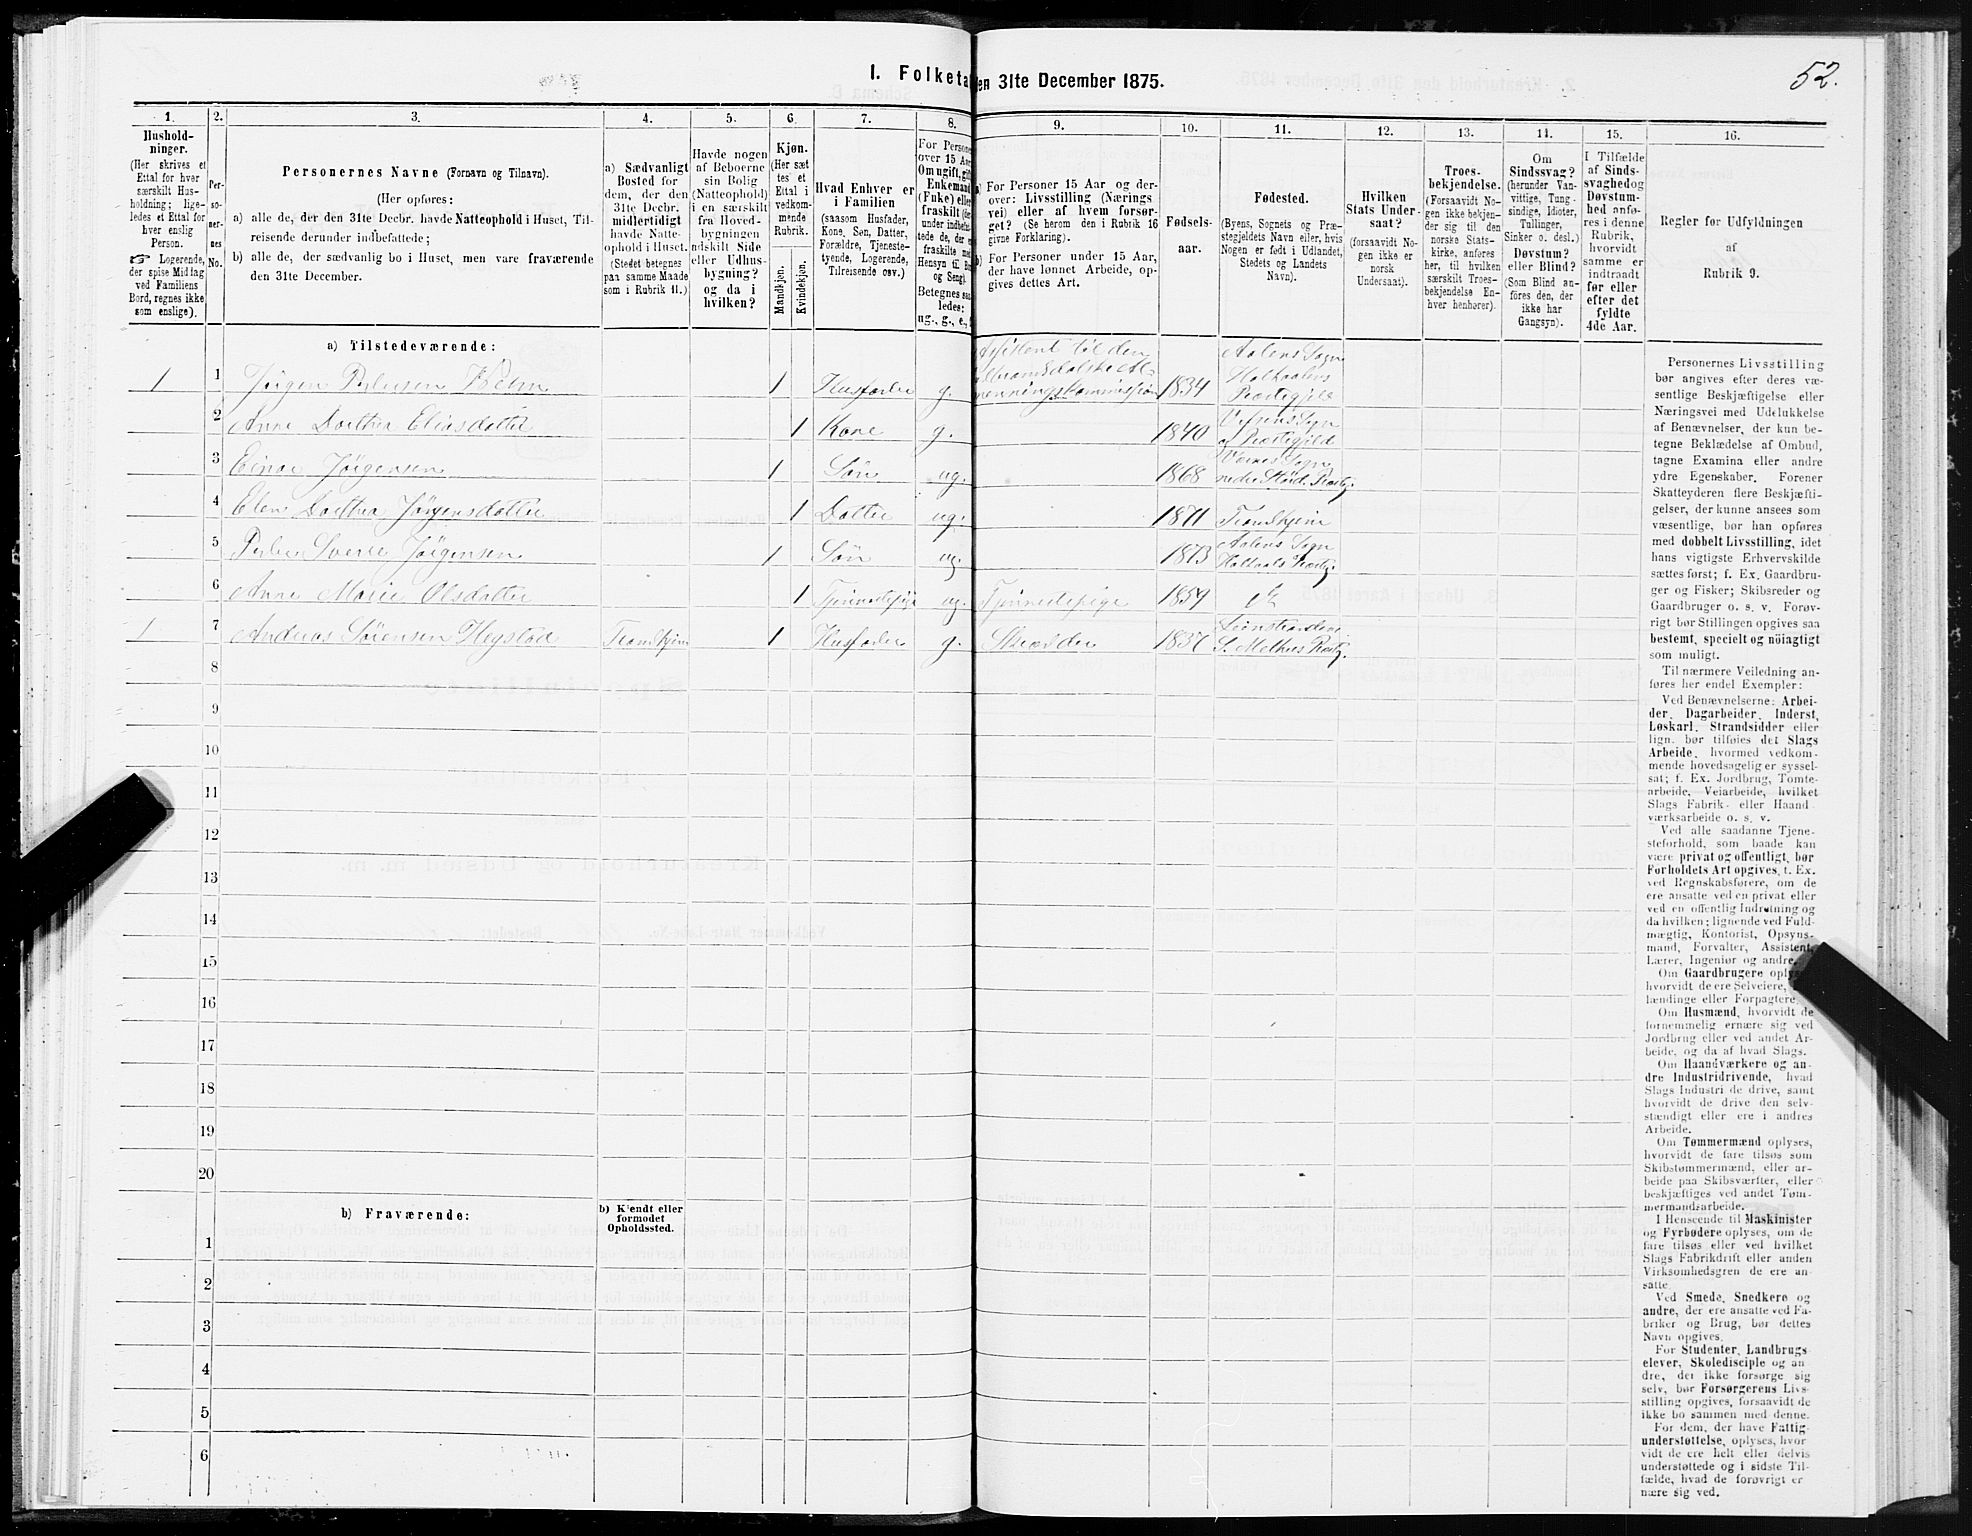 52.
I. Folketa
en 31te December 1875.
1.
Hushold-
ninger.
(Her skrives et
Ettal for hver
særskilt Hus-
holdning; lige-
ledes et Ettal for
hver enslig
Person.
☞ Logerende,
der spise Middag
ved Familiens
Bord, regnes ikke
som enslige).
2.
Per-
so-
ner-
nes
No.
3.
Personernes Navne (Fornavn og Tilnavn).
(Her opføres:
a) alle de, der den 31te Decbr. havde Natteophold i Huset, Til-
reisende derunder indbefattede;
b) alle de, der sædvanlig bo i Huset, men vare fraværende
den 31te December.
4.
a) Sædvanligt
Bosted for
dem, der den
31te Decbr.
midlertidigt
havde Natte-
ophold i Huset.
(Stedet betegnes
paa samme Maade
som i Rubrik 11.)
5.
Havde nogen
af Beboerne
sin Bolig
(Natteophold)
i en særskilt
fra Hoved-
bygningen
adskilt Side
eller Udhus-
bygning?
og da i
hvilken?
6.
Kjøn.
(Her sæt
tes et
Ettal i
vedkom-
mende
Rubrik.
Mandkjøn.
Kvindekjøn.
7.
Hvad Enhver er
i Familien
(saasom Husfader,
Kone, Søn, Datter,
Forældre, Tjeneste-
tyende, Logerende,
Tilreisende osv.)
8.
For Persone
over 15 Aar
Om ugift, gift
Enkemand
(Fuke) eller
fraskilt (der-
under indbefat-
tede de, der er
fraskilte med
Hensyn til Bo
og Seng).
Betegnes saa
ledes:
ug., g., e.,
9.
a) For Personer 15 Aar og der-
over: Livsstilling (Nærings
vei) eller af hvem forsør-
get? (Se herom den i Rubrik 16
givne Forklaring).
b) For Personer under 15 Aar,
der have lønnet Arbeide, op-
gives dettes Art.
10.
Fødsels-
aar.
11.
Fødested.
(Byens, Sognets og Præ-
stegjeldets Navn eller, hvis
Nogen er født i Udlandet,
Stedets og Landets
Navn).
12.
Hvilken
Stats Under-
saat?
(forsaavidt No-
gen ikke er
norsk
Undersaat).
13.
Troes-
bekjendelse.
(Forsaavidt No-
gen ikke bekjen-
der sig til den
norske Stats-
kirke, anføres
her, til hvilken
særskilt Troes-
bekjendelse En-
hver henhører).
14.
Om
Sindssvag?
(herunder Van-
vittige, Tung-
sindige, Idioter,
Tullinger,
Sinker o. desl.)
Døvstum?
eller Blind?
(Som Blind an-
føres den, der
ikke har
Gangsyn).
15.
I Tilfælde
af Sinds-
svaghed og
Døvstum-
hed anfø-
res i denne
Rubrik,
hvorvidt
samme er
indtraadt
før eller
efter det
fyldte
4de Aar.
16.
Regler for Udfyldningen
af
Rubrik 9.
a) Tilstedeværende:
1 1 Jørgen Pedersen Holm 1 Husfader g. Assistent til den 1834 Aalens Sogn
Holtaalens
Præstegjeld
2 Anne Dorthea Eliasdatter 1 Kone g. 1840 Vefsens Sogn
og Præstegjeld
3 Einar Jørgensen 1 Søn ug. 1868 Værnes Sogn
nedre Størd. Præstg.
4 Elen Dorthea Jørgensdatter 1 Datter ug. 1871 Trondhjem
5 Peder Sverre Jørgensen 1 Søn ug. 1873 Aalens Sogn
Holtaals Præstg.
6 Anne Marie Olsdatter 1 Tjenestepige ug. Tjenestepige 1859
1 7 Andreas Sørensen Hegstad Trondhjem 1 Husfader g. Skrædder 1837 Leinstrandens
S. Melhus Præstg.
8
9
10
11
12
13
14
15
16
17
18
19
20
b) Fraværende:
b) Kjendt eller
formodet
Opholdssted.
1
2
3
4
5
6
Personernes Livsstilling
bør angives efter deres væ-
sentlige Beskjæftigelse eller
Næringsvei med Udelukkelse
af Benævnelser, der kun be-
tegne Beklædelse af Ombud,
tagne Examina eller andre
ydre Egenskaber. Forener
Skatteyderen flere Beskjæfti-
gelser, der kunne ansees som
væsentlige, bør han opføres
med dobbelt Livsstilling, idet
hans vigtigste Erhvervskilde
sættes først; f. Ex. Gaardbru-
ger og Fisker; Skibsreder og
Gaardbruger o. s. v. Forøv-
rigt bør Stillingen opgives saa
bestemt, specielt og nöiagtigt
som muligt.
Til nærmere Veiledning an-
føres her endel Exempler:
Ved Benævnelserne: Arbei-
der, Dagarbeider, Inderst,
Løskarl, Strandsidder eller
lign. bør tilføies det Slags
Arbeide, hvormed vedkom-
mende hovedsagelig er syssel-
sat; f. Ex. Jordbrug, Tomte-
arbeide, Veiarbeide, hvilket
Slags Fabrik- eller Haand-
værksarbeide o. s. v.
Ved alle saadanne Tjene-
steforhold, som baade kan
være privat og offentligt, bør
Forholdets Art opgives, f. Ex.
ved Regnskabsførere, om de
ere ansatte ved en privat eller
ved en offentlig Indretning og
da hvilken; lignende ved Fuld-
mægtig, Kontorist, Opsyns-
mand, Forvalter, Assistent,
Lærer, Ingeniør og andre.
Om Gaardbrugere oplyses,
hvorvidt de ere Selveiere,
lændinge eller Forpagtere.
Om Husmænd, hvorvidt de
fornemmelig ernære sig ved
Jordbrug eller ved andet Ar-
beide, og da af hvad Slags.
Om Haandværkere og an-
dre Industridrivende, hvad
Slags Industri de drive, samt
hvorvidt de drive den selv-
stændigt eller ere i andres
Arbeide.
Om Tømmermænd oplyses,
hvorvidt de fare tilsøs som
Skibstømmermænd, eller ar-
beide paa Skibsværfter, eller
beskjæftiges ved andet Tøm-
mermandsarbeide.
I Henseende til Maskinister
og Fyrbødere oplyses, om de
fare tilsøs eller ved hvilket
Slags Fabrikdrift eller anden
Virksomhedsgren de ere an-
satte.
Ved Smede, Snedkere og
andre, der ere ansatte ved Fa-
briker og Brug, bør dettes
Navn opgives.
For Studenter, Landbrugs
elever, Skoledisciple og an
dre, der ikke forsørge sig
selv, bør Forsørgerens Livs-
stilling opgives, forsaavidt de
ikke bo sammen med denne.
For dem, der have Fattig-
understøttelse, oplyses, hvor
vidt de ere helt eller delvis
understøttede og i sidste Til-
fælde, hvad de forøvrigt er
nære sig ved.